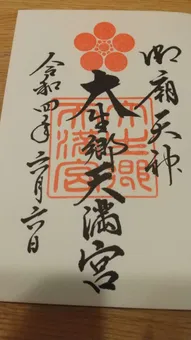 御廟天神
大生郷天満宮
令和四年六月六日
大生郷天満宮